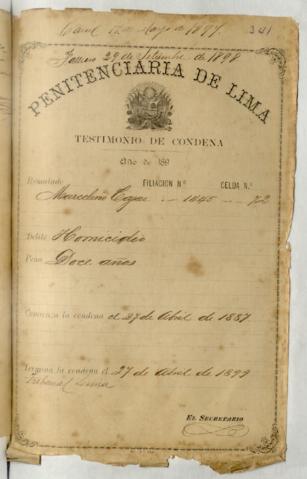 de 1897. 341
29 de Setiembre de 1898
PENITENCIARIA DE LIMA
TESTIMONIO DE CONDENA
Año de 189
Rematado FILIACION Nº CELDA Nº
Marcelino 1045 72
Delito Homicidio
Pena Doce años
Comienza la condena el 27 de Abril de 1887
Termina la condena el 27 de Abril de 1899
Tribunal Lima
EL SECRETARIO